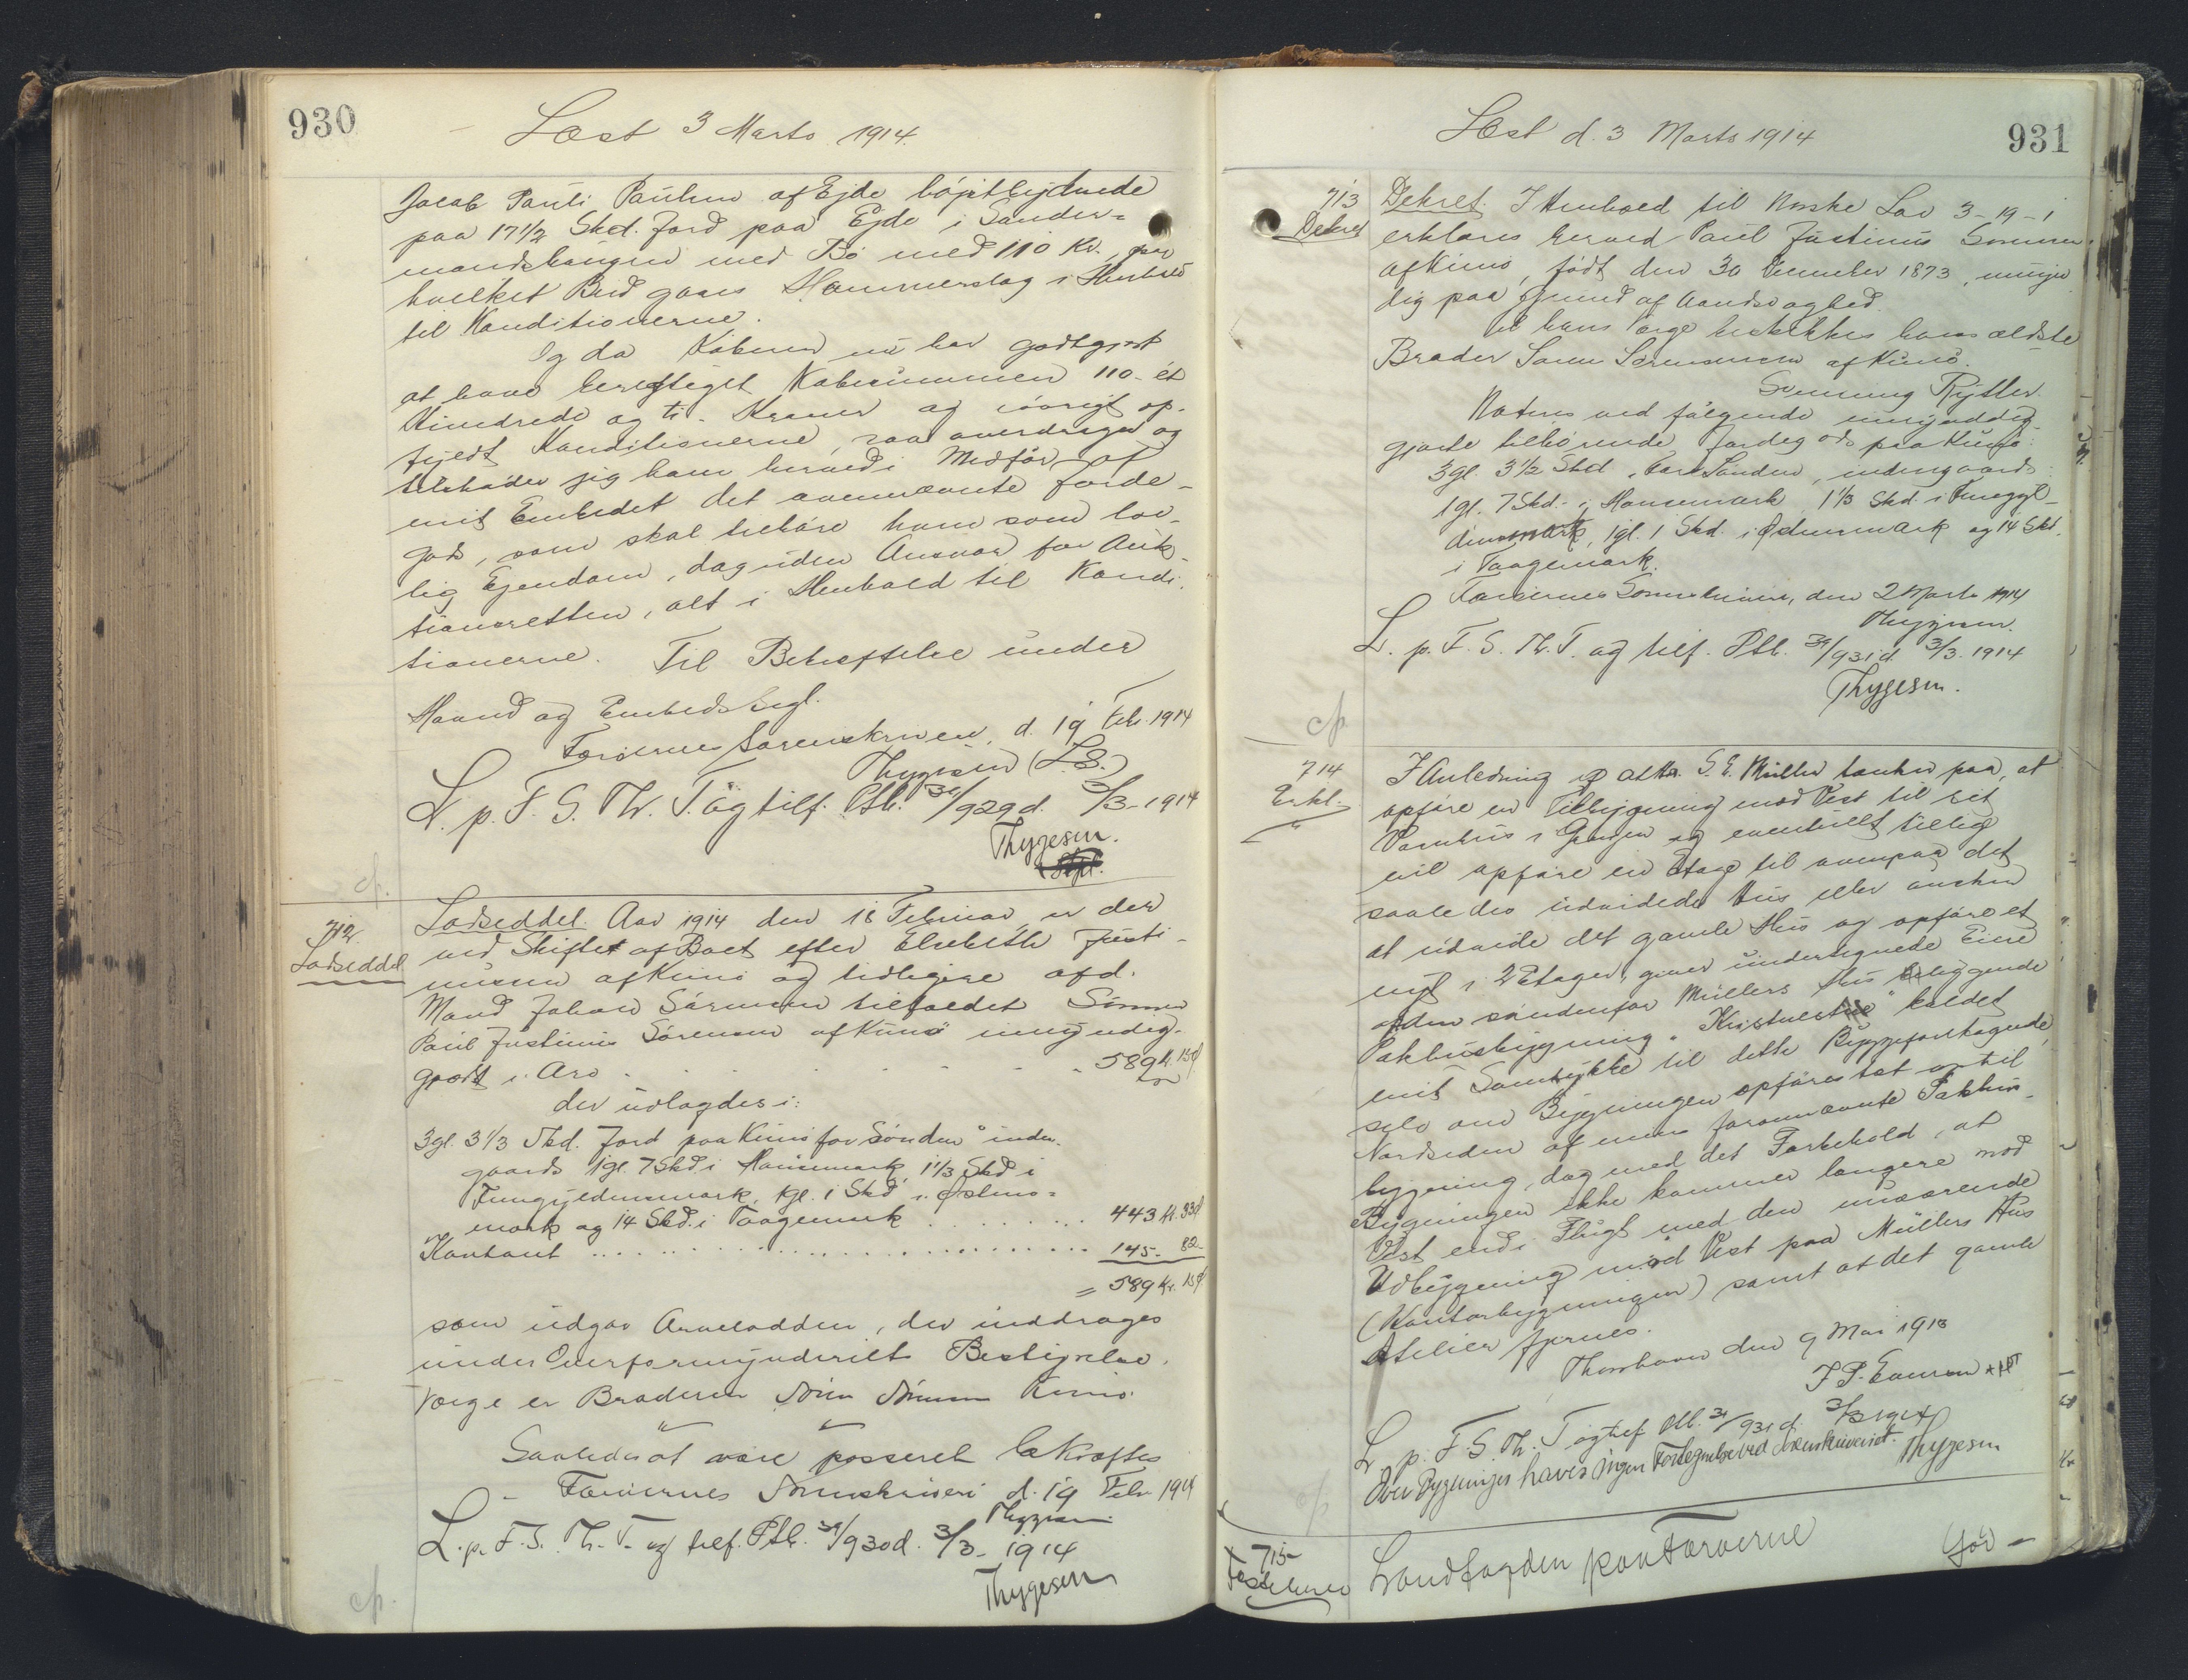 930
Læst 3 Marts 1914.
Jacob Pauli Poulsen af Ejde højstbydende
paa 17 1/2 Skd. Jord paa Ejde i Sønder-
mandshaugen med Bø med 110 Kr., paa
hvilket Bud gaves Hammerslag i Henhold
til Konditionerne.
Og da Køberen nu har godtgjort
at have berigtiget Købesummen 110 - ét
Hundrede og ti - Kroner og iøvrigt op-
fyldt Konditionerne, saa overdrages og
tilskødes jeg ham herved i Medfør af
mit Embede det ovennævnte Jorde-
gods, som skal tilhøre ham som lov-
lig Ejendom, dog uden Ansvar for Auk-
tionsretten, alt i Henhold til Kondi-
tionerne.
Til Bekræftelse under
Haand og Embedssegl.
Færøernes Sorenskriveri, d. 19 Febr. 1914
Thygesen (L.S.)
L. p. F. S. Th. T. og tilf. Ptb. 31/929 d. 3/3 - 1914
Thygesen.
cp.
712.
Lodseddel
Lodseddel. Aar 1914 den 18 Februar, er der
ved Skiftet af Boet efter Elsebeth Justi-
nussen af Kunø og tidligere afd.
Mand Johan Sørensen tilfaldet Sønnen
Poul Justinus Sørensen af Kunø umyndig-
gjort i Arv . . . . . . . 589 Kr. 15 Ø
der udlagdes i:
3 gl. 3 1/3 Skd. Jord paa Kunø for Sønden" inden-
gaards 1 gl. 7 Skd. i Hansemark, 1 1/3 Skd i
Funygldensmark, 1 gl. 1 Skd. i Østens-
mark og 14 Skd. i Taagemark . . . . . . . . . 443 Kr. 33 Ø
Kontant . . . . . . . . . . . . . . . . . . . 145 - 82 -
= 589 Kr. 15 Ø
som udgør Arvelodden, der inddrages
under Overformynderiets Bestyrelse.
Værge er Broderen Søren Sørensen Kunø.
Saaledes at være passeret bekræftes
Færøernes Sorenskriveri d. 19 Febr. 1914
Thygesen
L. p. F. S. Th. T. og tilf. Ptb. 31/930 d. 3/3 - 1914
Thygesen
cp.
Læst d. 3 Marts 1914
931
713
Dekret
Dekret. I Henhold til Norske Lov 3-19-1
erklæres herved Poul Justinus Sørensen
af Kunø, født den 30 December 1873, umyn-
dig paa Grund af Aandssvaghed.
Til hans Værge beskikkes hans ældste
Broder Søren Sørensen af Kunø.
Rytter.
Noteres ved følgende umyndig-
gjorte tilhørende Jordegods paa Kunø:
3 gl. 3 1/2 Skd. for Sønden, indengaards:
1 gl. 7 Skd. i Hansemark 1 1/3 Skd. i Funygl-
densmark, 1 gl. 1 Skd. i Østensmark og 14 Skd.
i Taagemark.
Færøernes Sorenskriveri, den 2 Marts 1914
Thygesen.
L. p. F. S. Th. T. og tilf. Ptb. 31/931 d. 3/3. 1914
Thygesen.
cp.
714
Erkl.
I Anledning af at Hr. S. E. Müller tænker paa, at
opføre en Tilbygning mod Vest til sit
Varehus i Gongen og eventuelt tillige
vil opføre en Etage til ovenpaa det
saaledes udvidede Hus eller ønsker
at udvide det gamle Hus og opføre et
nyt i 2 Etager, giver undertegnede Eiere
af den søndenfor Müllers Hus beliggende
Pakhusbygning " kaldet
mit Samtykke til dette Byggeforetagende,
selv om Bygningen opføres tæt op til
Nordsiden af min forannævnte Pakhus-
bygning, dog med det Forbehold, at
Bygningen ikke kommer længere mod
Vest end i Flugt med den nuværende
Udbygning mod Vest paa Müllers Hus
(Kontorbygningen) samt at det gamle
Atelier fjernes.
Thorshavn den 9 Mai 1913
L. p. F. S. Th. T. og tilf. Ptb. 31/931 d. 3/3 1914
Over Bygninger haves ingen Fortegnelse ved Sorenskriveriet. Thygesen
cp
715
Landfogden paa Færøerne
Gør -